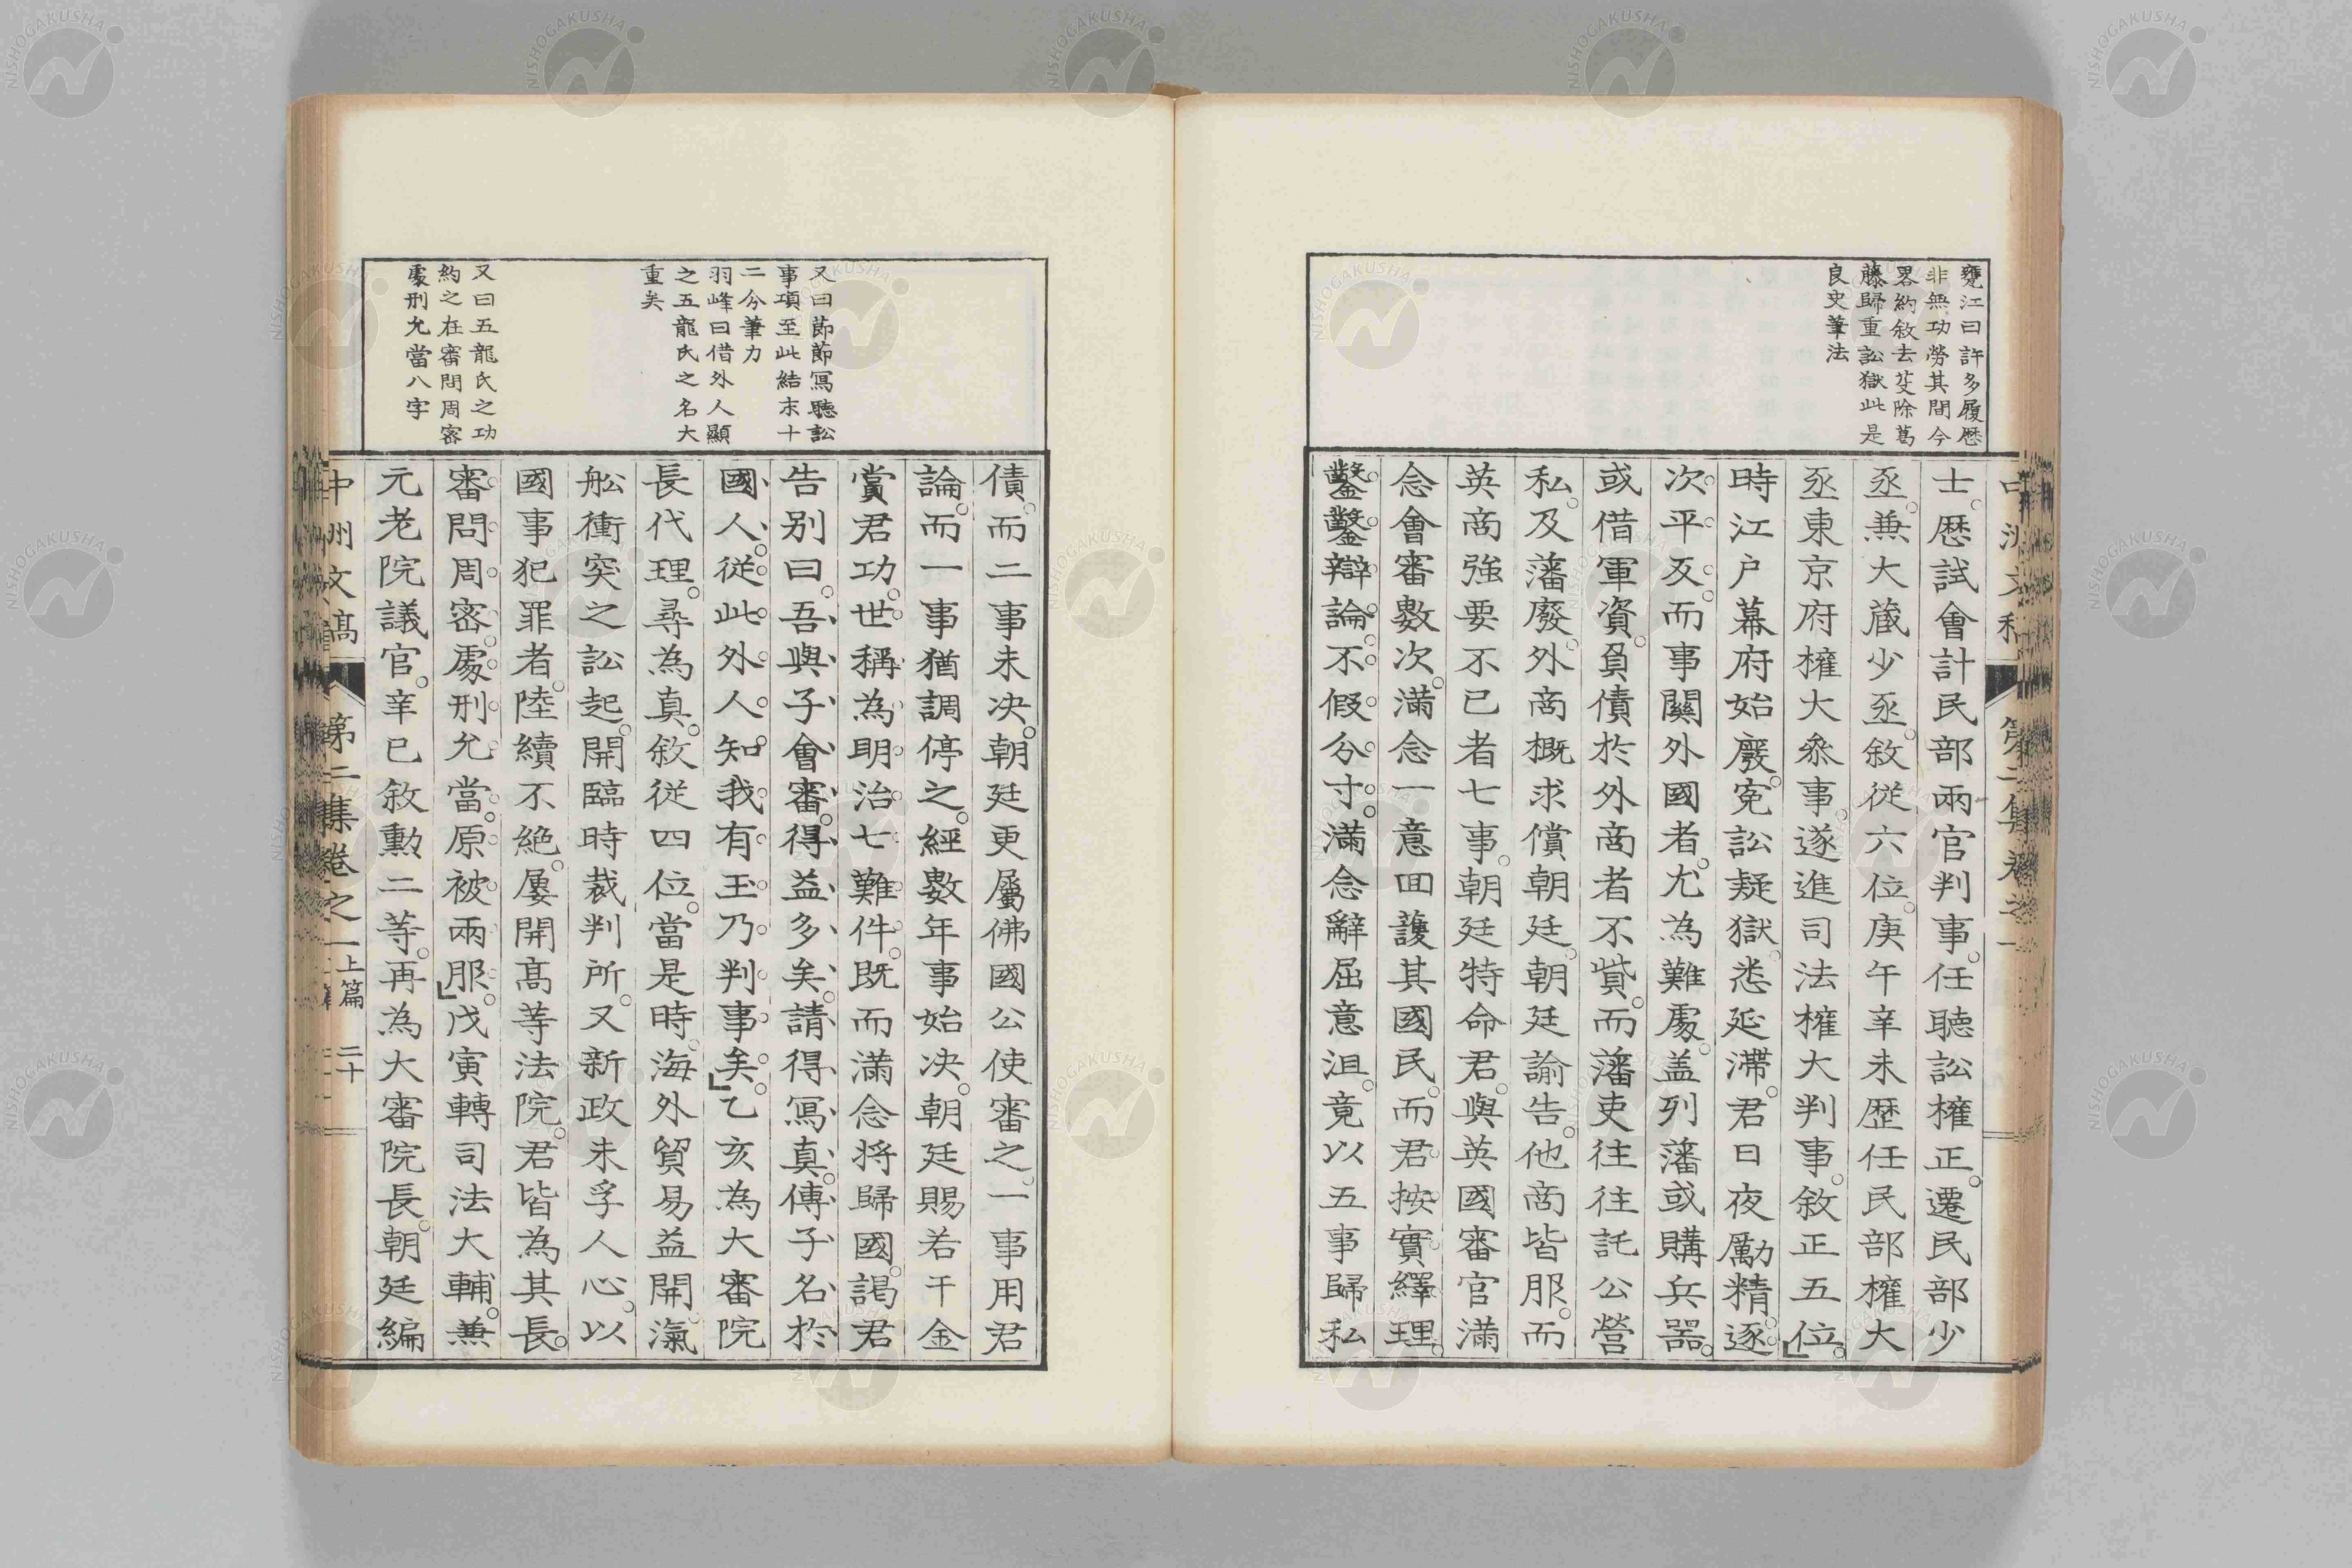 甕江曰許多履歴
非無功勞其間今
畧約敘去芟除葛
藤歸重訟獄此是
良史筆法
士。歴試會計民部兩官判事。任聽訟權正。遷民部少
丞。兼大蔵少丞。敘從六位。庚午辛未歴任民部權大
丞東京府權大叅事。遂進司法權大判事。敘正五位。
時江户幕府始廢。寃訟疑獄。悉延滯。君日夜勵精。逐
次。平反。而事關外國者。尤為難處。盖列藩或購兵噐。
或借軍資。負債於外商者不貲。而藩吏往往託公營
私。及藩廢。外商概求償朝廷。朝廷諭告。他商皆服。而
英商強要不已者七事。朝廷特命君。與英國審官滿
念會審數次。滿念一意回護其國民。而君按實繹理。
鑿鑿辯論。不假分寸。滿念辭屈意沮。竟以五事歸私
債。而二事未决。朝廷更屬佛國公使審之。一事用君
論。而一事猶調停之。經數年事始决。朝廷賜若干金
賞君功。世稱為明治七難件。既而滿念將歸國。謁君
告别曰。吾與子會審。得益多矣。請得寫真。傳子名於
國人。從此外人知我有玉乃判事矣。乙亥為大審院
長代理。尋為真。敘從四位。當是時。海外貿易益開。滊
舩衝突之訟起。開臨時裁判所。又新政未孚人心。以
國事犯罪者。陸續不絶。屢開髙等法院。君皆為其長。
審問周密。處刑允當。原被兩服。戊寅轉司法大輔。兼
元老院議官。辛巳敘勳二等。再為大審院長。朝廷編
又曰節節寫聽訟
事項至此結末十
二分筆力
羽峰曰借外人顯
之五龍氏之名大
重矣
又曰五龍氏之功
約之在審問周密
處刑允當八字
中州文髙 第二集卷之一 上篇 二十